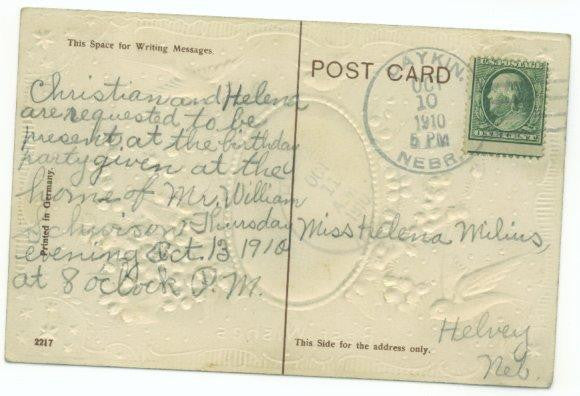 This Space for Writing Messages.
Christian and Helena
are requested to be
present, at the birthday
party given at the
home of Mr. William
Thursday
evening Oct. 13 1910
at 8 oclock P.M.
Printed in Germany.
2217
POST CARD
OCT
10
1910
5 PM
NEBR.
Miss Helena Milius,
Helvey
Neb.
This Side for the address only.